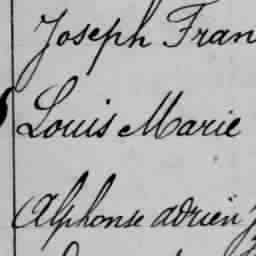 Joseph Fran
Louis Marie
Alphonse adrien